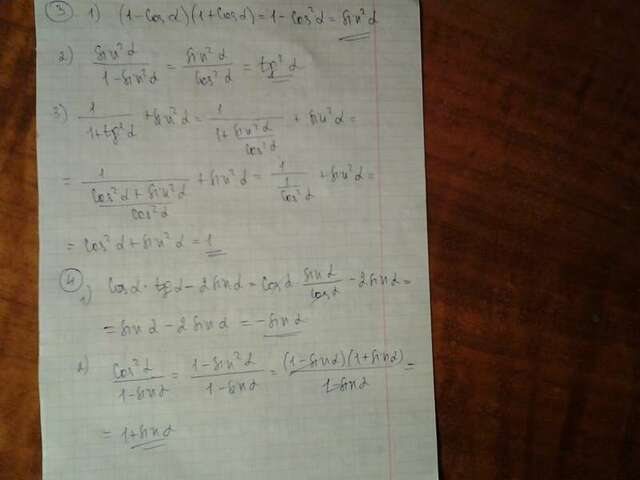 ③ 1) (1-cosα)(1+cosα)=1-cos²α=sin²α
2) sin²α/(1-sin²α) = sin²α/cos²α = tg²α
3) 1/(1+tg²α) + sin²α = 1/(1+sin²α/cos²α) + sin²α =
= 1/((cos²α+sin²α)/cos²α) + sin²α = 1/(1/cos²α) + sin²α =
= cos²α + sin²α = 1
④ 1) cosα·tgα-2sinα=cosα·sinα/cosα-2sinα=
= sinα-2sinα = -sinα
2) cos²α/(1-sinα) = (1-sin²α)/(1-sinα) = (1-sinα)(1+sinα)/(1-sinα) =
= 1+sinα